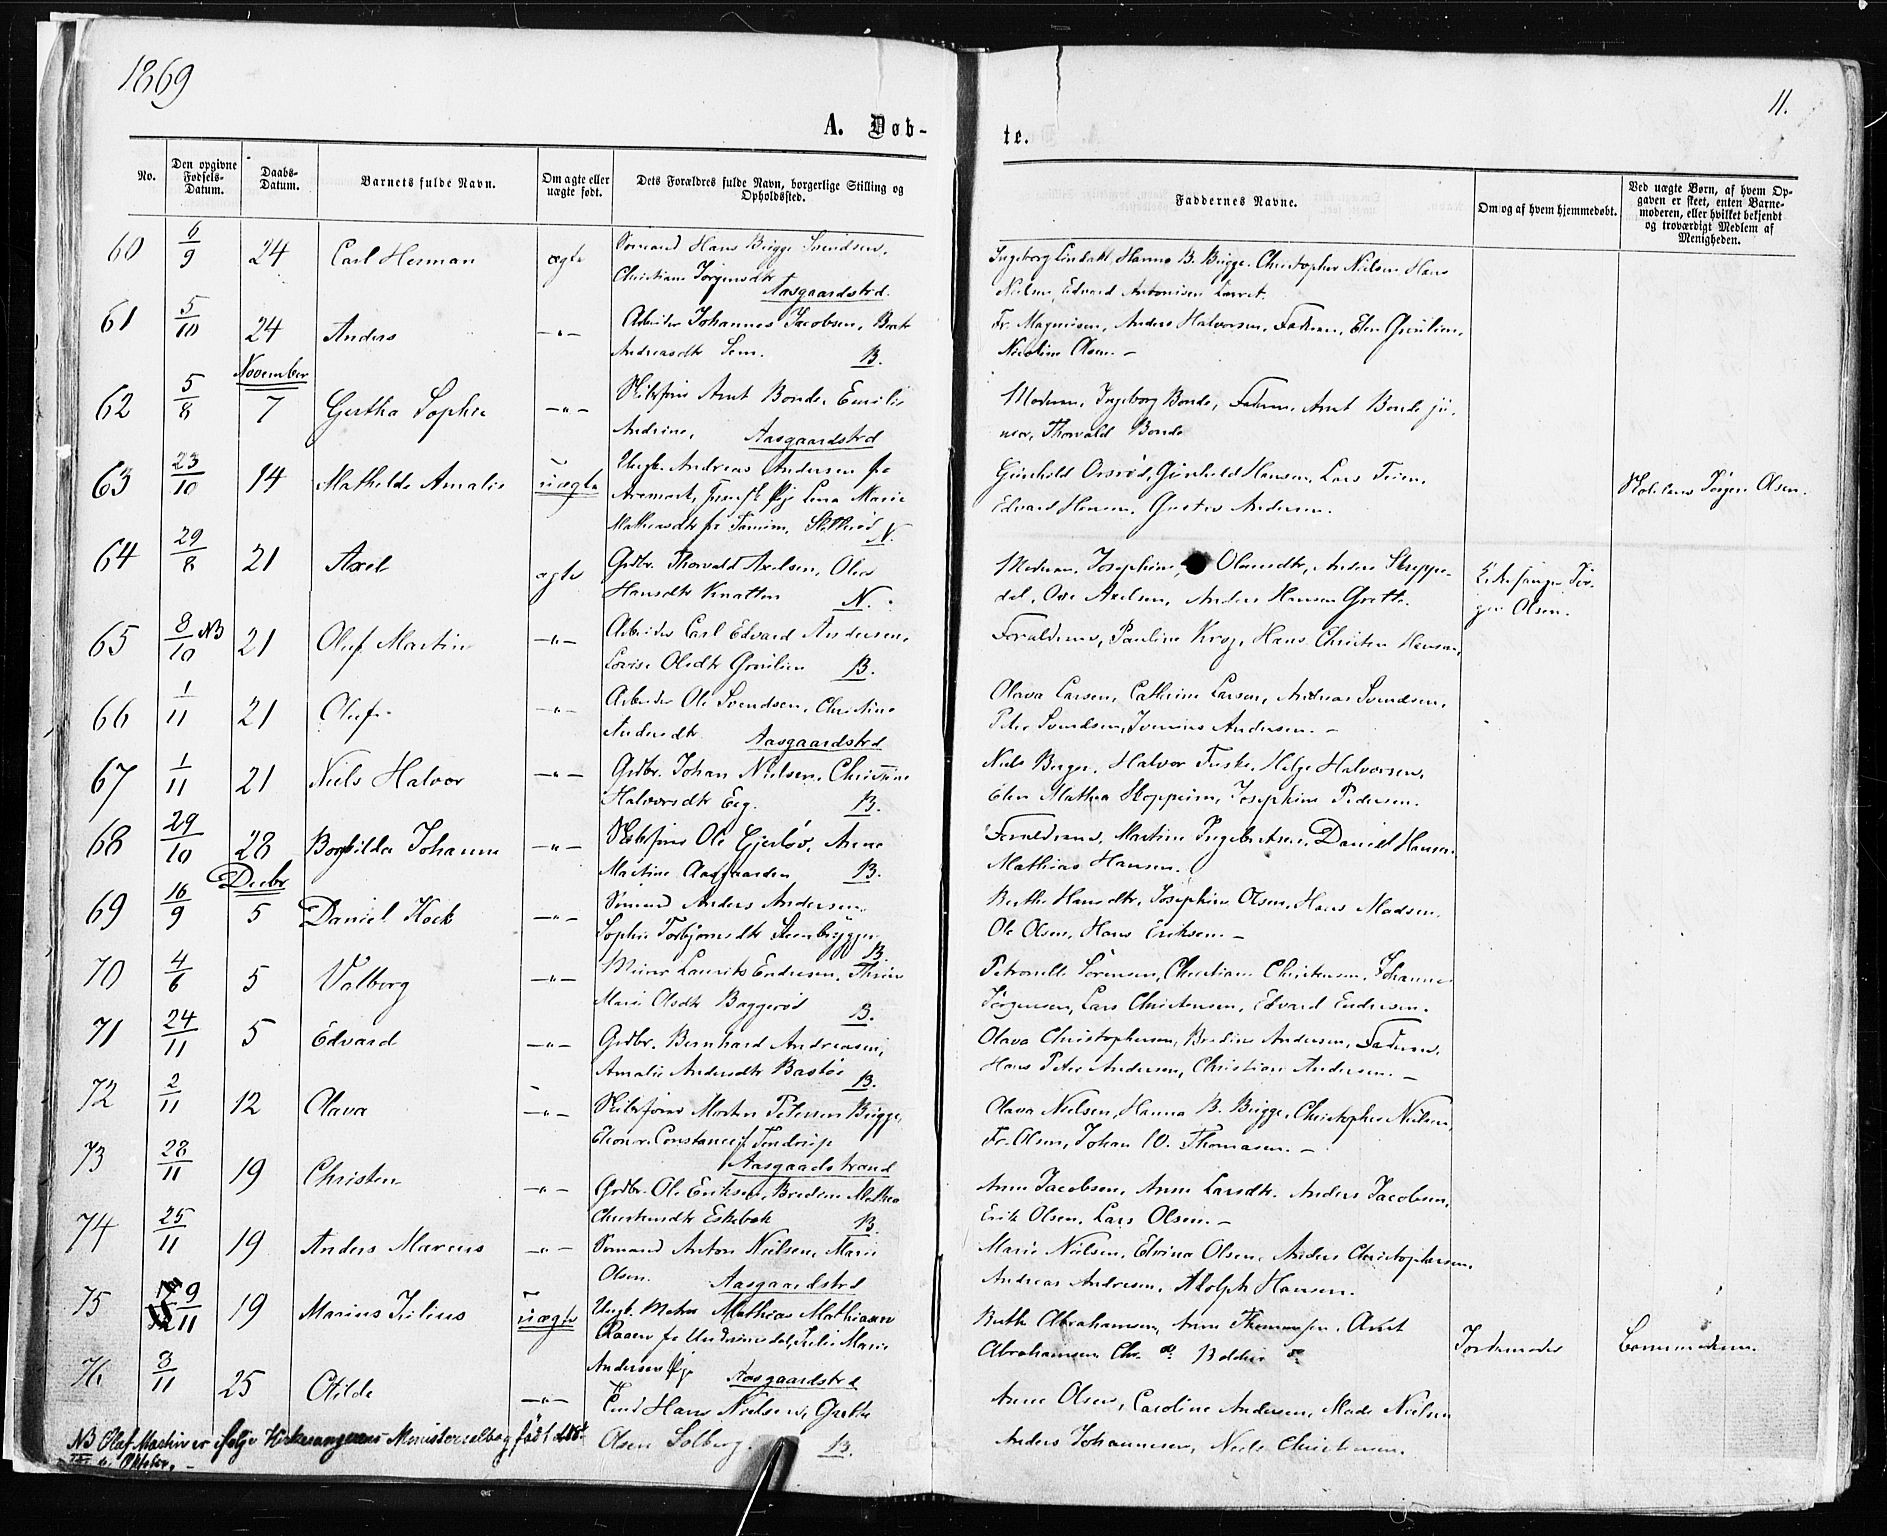 1869
11.
A. Døb-
te.
No.
Den opgivne Fødsels-Datum.
Daabs-Datum.
Barnets fulde Navn.
Om ægte eller uægte født.
Dets Forældres fulde Navn, borgerlige Stilling og Opholdssted.
Faddernes Navne.
Om og af hvem hjemmedøbt.
Ved uægte Børn, af hvem Opgaven er skeet, enten Barnemoderen, eller hvilket bekjendt og troværdigt Medlem af Menigheden.
60 6/9 24 Carl Herman ægte Sømand Hans Brygge Svendsen,
Christiane Jørgensdtr Aasgaardstrd.
Hanna B. Brygge, Christopher Nielsen, Hans
Nielsen, Edvard Antonisen
61 5/10 24 Anders -"- Arbeider Johannes Jacobsen,
Andreasdtr Sem. B.
Fr. Magnusen, Anders Halvorsen, Faderen, Elen
Nicoline Olsen. -
November
62 5/8 7 Gertha Sophie -"- Skibsfører Arnt Bonde, Emilie
Andrine, Aasgaardstrd
Moderen, Ingeborg Bonde, Faderen, Arnt Bonde ju-
nior, Thorvald Bonde
63 23/10 14 Mathilde Amalie uægte Ungk. Andreas Andersen fra
Aremark, Pige Lena Marie
Mathiasdtr fra N.
Gunhild Gunhild Hansen, Lars
Edvard Hansen, Gustav Andersen.
Jørgen Olsen.
64 29/8 21 Axel ægte Grdbr. Thorvald Axelsen, Olea
Hansdtr Knatten N.
Moderen, Josephine Olausdtr, Anders Skeppe-
dal, Ove Axelsen, Anders Hansen Grette.
Kirkesanger Jør-
gen Olsen.
65 8/10 NB 21 Oluf Martin -"- Arbeider Carl Edvard Andersen,
Lovise Olsdtr B.
Forældrene, Pauline Krog, Hans Christen Hansen,
66 1/11 21 Oluf -"- Arbeider Ole Svendsen, Christine
Andersdtr. Aasgaardstrd
Olava Larsen, Cathrine Larsen, Andreas Svendsen,
Peter Svendsen, Andersen. -
67 1/11 21 Niels Halvor -"- Grdbr. Johan Nielsen, Christine
Halvorsdtr Eeg. B.
Niels Berger, Halvor Helge Halvorsen,
Elen Mathea Josephine Pedersen.
68 29/10 28 Borghilda Johanne -"- Skibsfører Ole Gjerløv, Anne
Martine Aasgaarden B.
Forældrene, Martine Ingebretsen, Daniel Hansen
Mathias Hansen.
Decbr
69 16/9 5 Daniel Kock -"- Sømand Anders Andersen
Sophie Torbjørnsdtr Steenbryggen B.
Berthe Hansdtr, Josephine Olsen, Hans Madsen,
Ole Olsen, Hans Eriksen. -
70 4/6 5 Valborg -"- Murer Laurits Endresen, Thrine
Marie Olsdtr Baggerød B.
Petronelle Sørensen, Christiane Christensen, Johanne
Jørgensen, Lars Christensen, Edvard Endresen.
71 24/11 5 Edvard -"- Grdbr. Bernhard Andreasen,
Amalie Andersdtr Bastøe B.
Olava Christophersen, Bredine Andersen, Faderen,
Hans Peter Andersen, Christian Andersen. -
72 2/11 12 Olava -"- Skibsfører Morten Petersen Brygge,
Constance f. Aasgaardstrand
Olava Nielsen, Hanna B. Brygge, Christopher Nielsen,
Fr. Olsen, Johan W. Thomasen. -
73 28/11 19 Christen -"- Grdbr. Ole Eriksen, Bredine Mathea
Christensdtr Eskebæk B.
Anne Jacobsen, Anne Larsdtr. Anders Jacobsen,
Erik Olsen, Lars Olsen. -
74 25/11 19 Anders Marcus -"- Sømand Anton Nielsen, Marie
Olsen. Aasgaardstrd
Marie Nielsen, Elvina Olsen, Anders Christophersen,
Andreas Andresen, Adolph Hansen.
75 9/11 19 Marius Julius uægte Ungk. Mathias Mathiasen
fra Julie Marie
Andersen Pige Aasgaardstrd
Berthe Abrahamsen, Anne Arnt
Abrahamsen
Jordemoder
Barnemoderen.
76 3/11 25 Otilde -"- Hans Nielsen, Grethe
Olsen Solberg. B.
Anne Olsen, Caroline Andersen, Mads Nielsen
Anders Johannesen, Niels Christensen.
NB Oluf Martin er ifølge Kirkesangerens Ministerialbog født
Oktober. -